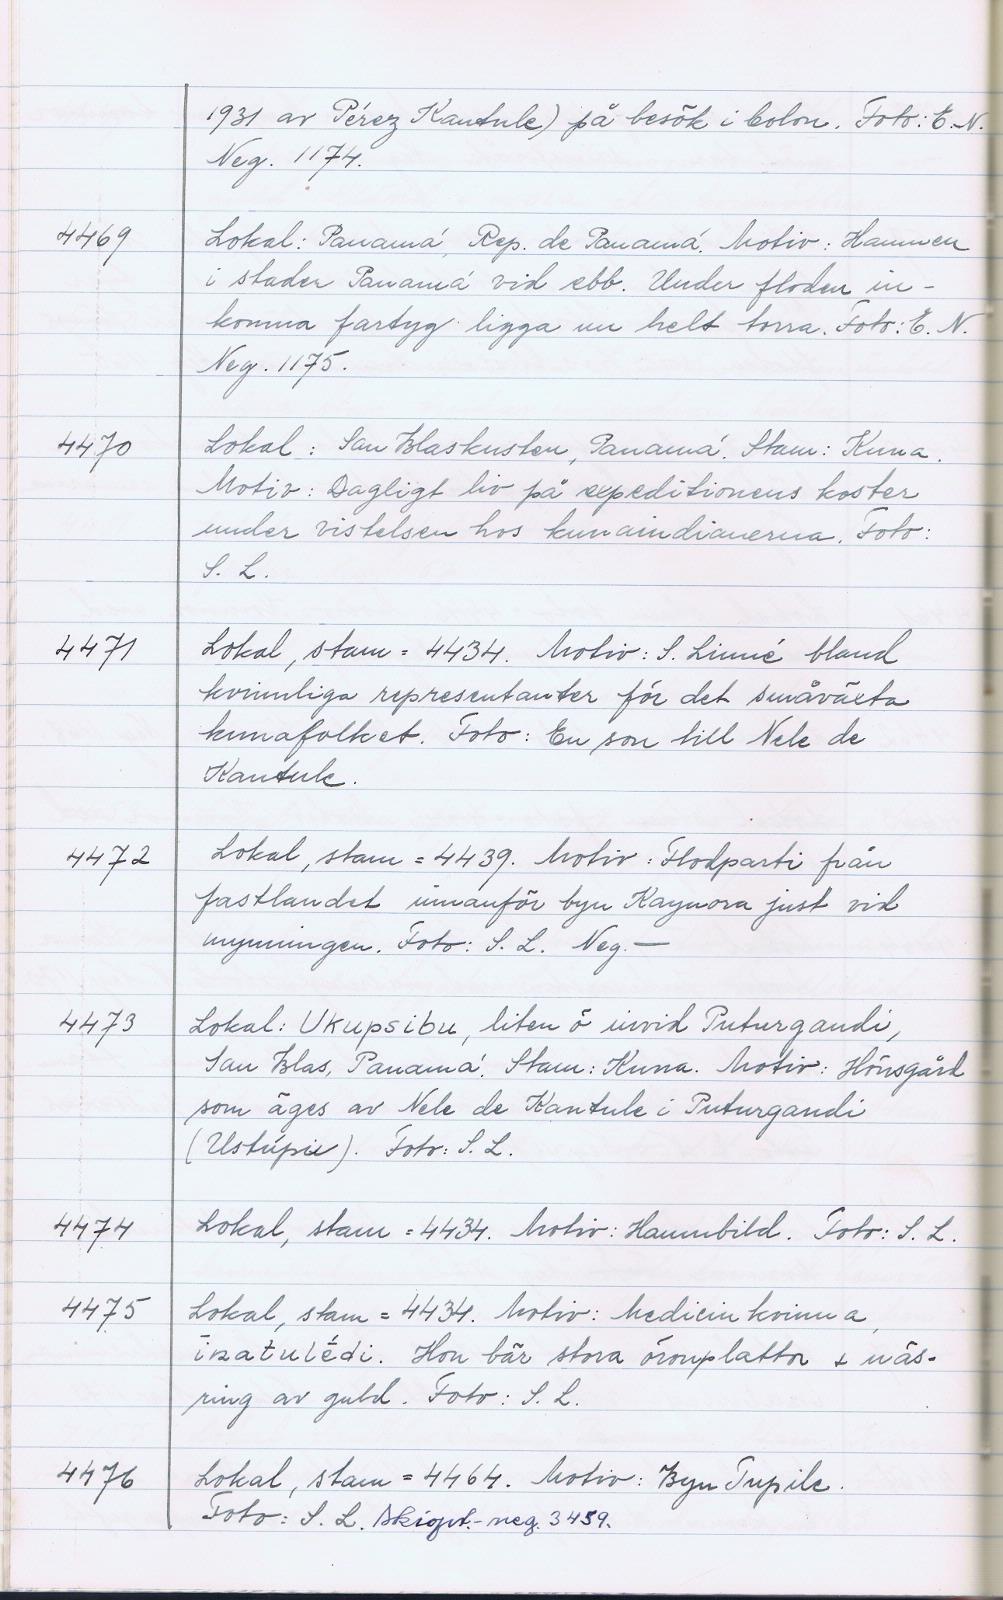 1931 av Pérez Kantule) på besök i Colon. Foto: E. N.
Neg. 1174.
4469 Lokal: Panamá, Rep. de Panamá. Motiv: Hamnen
i staden Panamá vid ebb. Under floden in-
komna fartyg ligga nu helt torra. Foto: E. N.
Neg. 1175.
4470 Lokal: San Blaskusten, Panamá. Stam: Kuna.
Motiv: Dagligt liv på expeditionens koster
under vistelsen hos kunaindianerna. Foto:
S. L.
4471 Lokal, stam = 4434. Motiv: S. Linné bland
kvinnliga representanter för det småväxta
kunafolket. Foto: En son till Nele de
Kantule.
4472 Lokal, stam = 4439. Motiv: Flodparti från
fastlandet innanför byn Kaynora just vid
mynningen. Foto: S. L. Neg. —
4473 Lokal: Ukupsibu, liten ö invid Puturgandi,
San Blas, Panamá. Stam: Kuna. Motiv: Hönsgård
som äges av Nele de Kantule i Puturgandi
(Ustúpu). Foto: S. L.
4474 Lokal, stam = 4434. Motiv: Hamnbild. Foto: S. L.
4475 Lokal, stam = 4434. Motiv: Medicinkvinna,
inatulédi. Hon bär stora öronplattor & näs-
ring av guld. Foto: S. L.
4476 Lokal, stam = 4464. Motiv: Byn Tupile.
Foto: S. L. Skiopt.-neg. 3459.